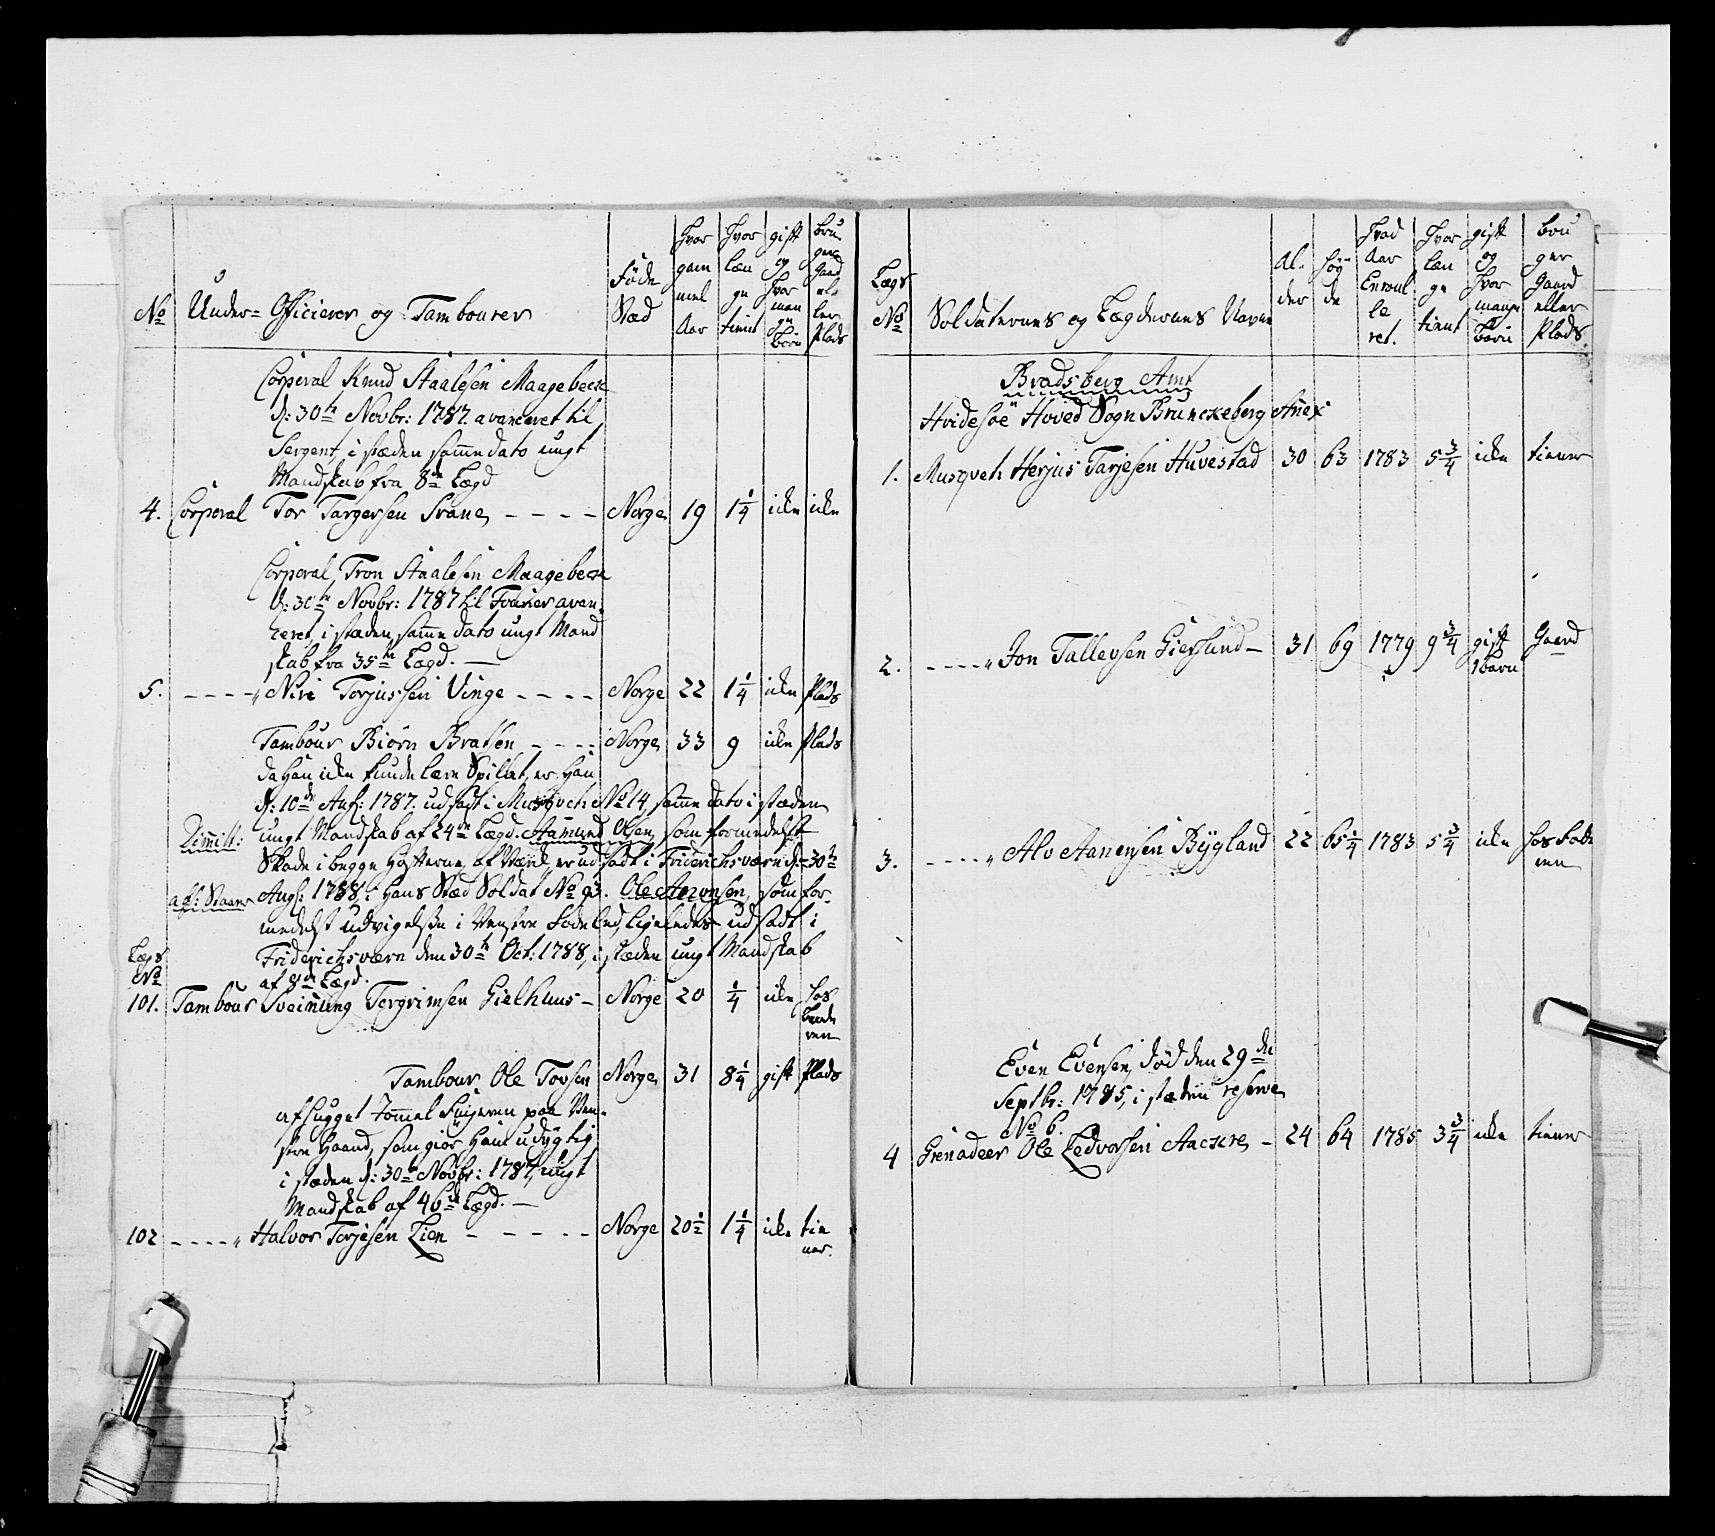 No
Under= Officierer og Tambourer
Føde Stæd
Hvor gammel Aar
Hvor længe tient
gift og Hvor mange Børn
bruger Gaard eller Plads
Corporal Knud Staalesen Maagebeck
d: 30te Novbr: 1787. avanceret til
Sergent i stæden samme dato ungt
Mandskab fra 8de Lægd
4. Corporal Tor Targersen Svane - - - - Norge 19 1 1/4 ikke ikke
Corporal Tron Staalesen Maagebeck
d: 30te Novbr: 1787 til Fourier avan-
ceret, i stæden samme dato ungt Mand
skab fra 35te Lægd. —
5. - - - - „ Niri Torjussen Vinge - - - - Norge 22 1 1/4 ikke Plads
Tambour Biørn Bratsen - - - - Norge 33 9 ikke Plads
da Han ikke kunde lære Spillet, er Han
d: 10de Aug: 1787. udsadt i Musqvet: No 14, samme dato i stæden
Dimitt: ungt Mandskab af 24de Lægd. Aamund Olsen, som formedelst
Skade i begge Hofterne, af Værd, er udsadt i Friderichsværn d: 30te
af: Staars Aug: 1788, i Hans Stæd Soldat No 93. Ole Anonsen, som for-
medelst udvigelse i Venstre Fodeled, ligeledes udsadt i
Lægs Friderichsværn den 30te Oct: 1788, i stæden ungt Mandskab
No af 8de Lægd.
101. Tambour Sveinung Tergrimsen Gielhuus - Norge 20 1/4 ikke hos
ren
Tambour Ole Tovsen Norge 31 8 1/4 gift Plads
afhugget Tommel Fingeren paa Ven-
stre Haand, som giør Ham udygtig
i stæden d: 30te Novbr: 1787, ungt
Mandskab af 46de Lægd. —
102 - - - - „ Halvor Torjesen Lien - - - - - Norge 20 1/2 1 1/4 ikke tie
ner.
Lægs No
Soldaternes og Lægdernes Navne
Alder
Høyde
Hvad Aar Enroulleret.
Hvor længe tient
gift og Hvor mange Børn
bruger Gaard eller Plads.
Bradsberg Amt
Hvidesøe Hoved Sogn Brunckeberg Anex
1. Musqvet: Herjus Tarjesen Huvestad 30 63 1783 5 3/4 ikke tiener
2. - - - - „ Jon Tallevsen Gierslund — 31 69 1779 9 3/4 gift Gaard
1 Barn
3. - - - - „ Alv Aanensen Bygland 22 65 1/4 1783 5 3/4 ikke hos Fade
ren
Even Evensen, død den 29de
Septbr: 1785, i stæden reserve
No 6.
4 Grenadeer Ole Ledvorsen Aackre - 24 64 1785 3 3/4 ikke tiener